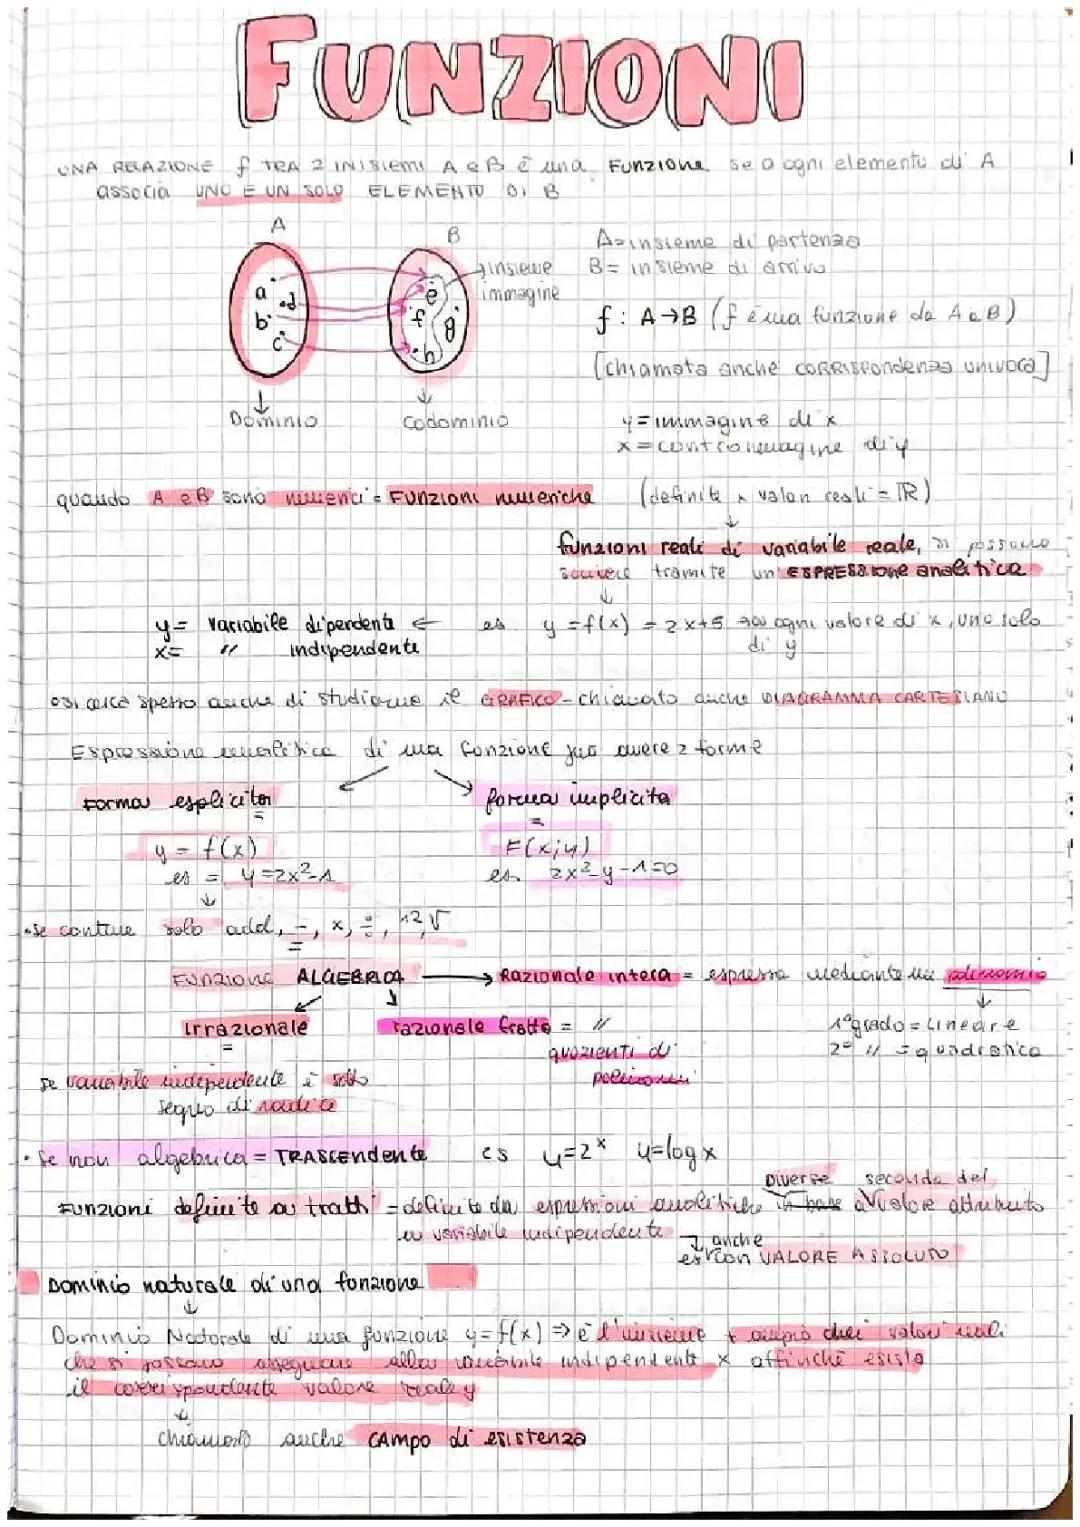 FUNZIONI
UNA RELAZIONE f TRA 2 INISIEMI A e B è una Funzione se a ogni elemento di A
associa UNO E UN SOLO ELEMENTO DI B
A
B
insieme
immagine
a
b
c
d
e
f
g
h
Dominio
Codominio
A=insieme di partenza
B= insieme di arrivo
f : A→B (f è una funzione da A a B)
[chiamata anche CORRISPONDENZA UNIVOCA]
y=immagine di x
x=controimmagine di y
quando A e B sono numerici = FUNZIONI numeriche (definite a valori reali = ℝ)
↓
funzioni reali di variabile reale, si possono
scrivere tramite un ESPRESSIONE analitica
↓
y= variabile dipendente ← es y=f(x) = 2x+5 ogni valore di x, uno solo
x= // indipendente di y
si cerca spesso anche di studiare il GRAFICO - chiamato anche DIAGRAMMA CARTESIANO
Espressione analitica di una funzione può avere 2 forme
forma esplicita
forma implicita
y = f(x)
F(x;y)
es = y=2x²-1
es. 2x²-y-1=0
↓
•se contiene solo add, -, x, ÷, √
FUNZIONE ALGEBRICA → Razionale intera = espressa mediante un polinomio
↓
irrazionale
razionale fratta = //
quozienti di
polinomi
1°grado=lineare
2° // =quadratica
se variabile indipendente è sotto
segno di radice
• Se non algebrica = TRASCENDENTE es y=2ˣ y=logx
Funzioni definite a tratti = definite da espressioni analitiche diverse a seconda del valore attribuito
a variabile indipendente
↓ anche
es con VALORE ASSOLUTO
Dominio naturale di una funzione
↓
Dominio Naturale di una funzione y=f(x) ⇒ è l'insieme + ampio dei valori reali
che si possono assegnare alla variabile indipendente x affinché esista
il corrispondente valore reale y
↓
chiamato anche CAMPO di esistenza